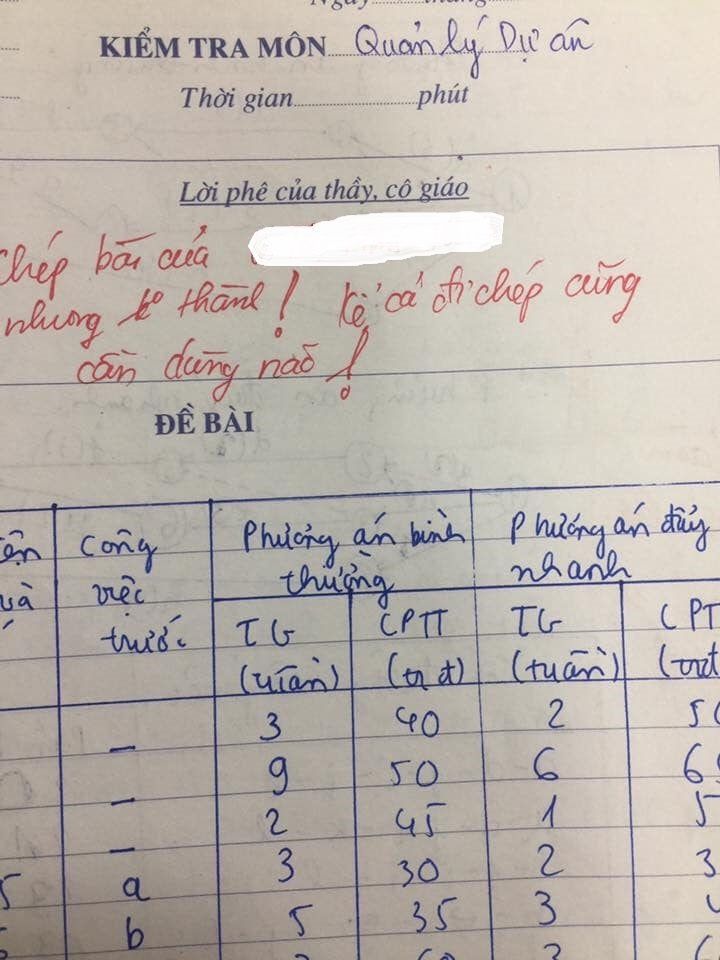 KIỂM TRA MÔN Quản lý Dự án
Thời gian phút
Lời phê của thầy, cô giáo
Chép bài của
nhưng ko thành! Kể cả đi chép cũng
cần dùng não!
ĐỀ BÀI
Công việc trước
Phương án bình thường
Phương án đẩy nhanh
TG (tuần) CPTT (tr đ) TG (tuần)
– 3 40 2
– 9 50 6
– 2 45 1
a 3 30 2
b 5 35 3